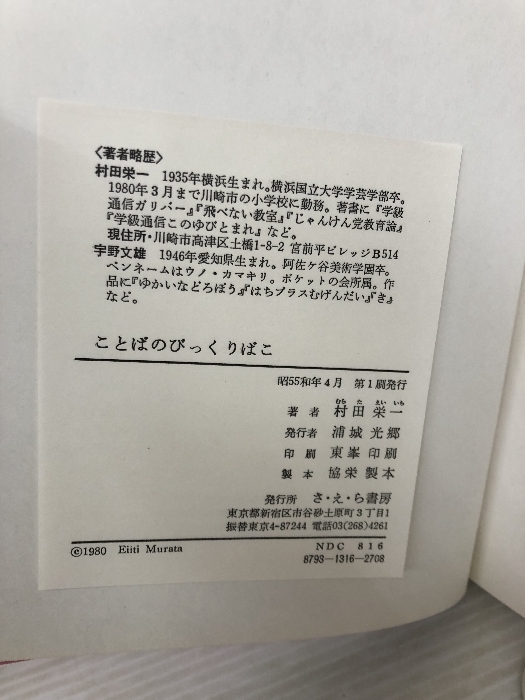 〈著者略歴〉
村田栄一　1935年横浜生まれ。横浜国立大学学芸学部卒。
1980年3月まで川崎市の小学校に勤務。著書に『学級
通信ガリバー』『飛べない教室』『じゃんけん党教育論』
『学級通信このゆびとまれ』など。
現住所・川崎市高津区土橋1-8-2 宮前平ビレッジB514
宇野文雄　1946年愛知県生まれ。阿佐ケ谷美術学園卒。
ペンネームはウノ・カマキリ。ポケットの会所属。作
品に『ゆかいなどろぼう』『はちプラスむげんだい』『き』
など。
ことばのびっくりばこ
昭55和年4月　第1刷発行
むら た えい いち
著者　村田栄一
発行者　浦城光郷
印刷　東峯印刷
製本　協栄製本
発行所　さ・え・ら書房
東京都新宿区市谷砂土原町3丁目1
振替東京4-87244　電話03(268)4261
©1980　Eiiti Murata
NDC 816
8793-1316-2708